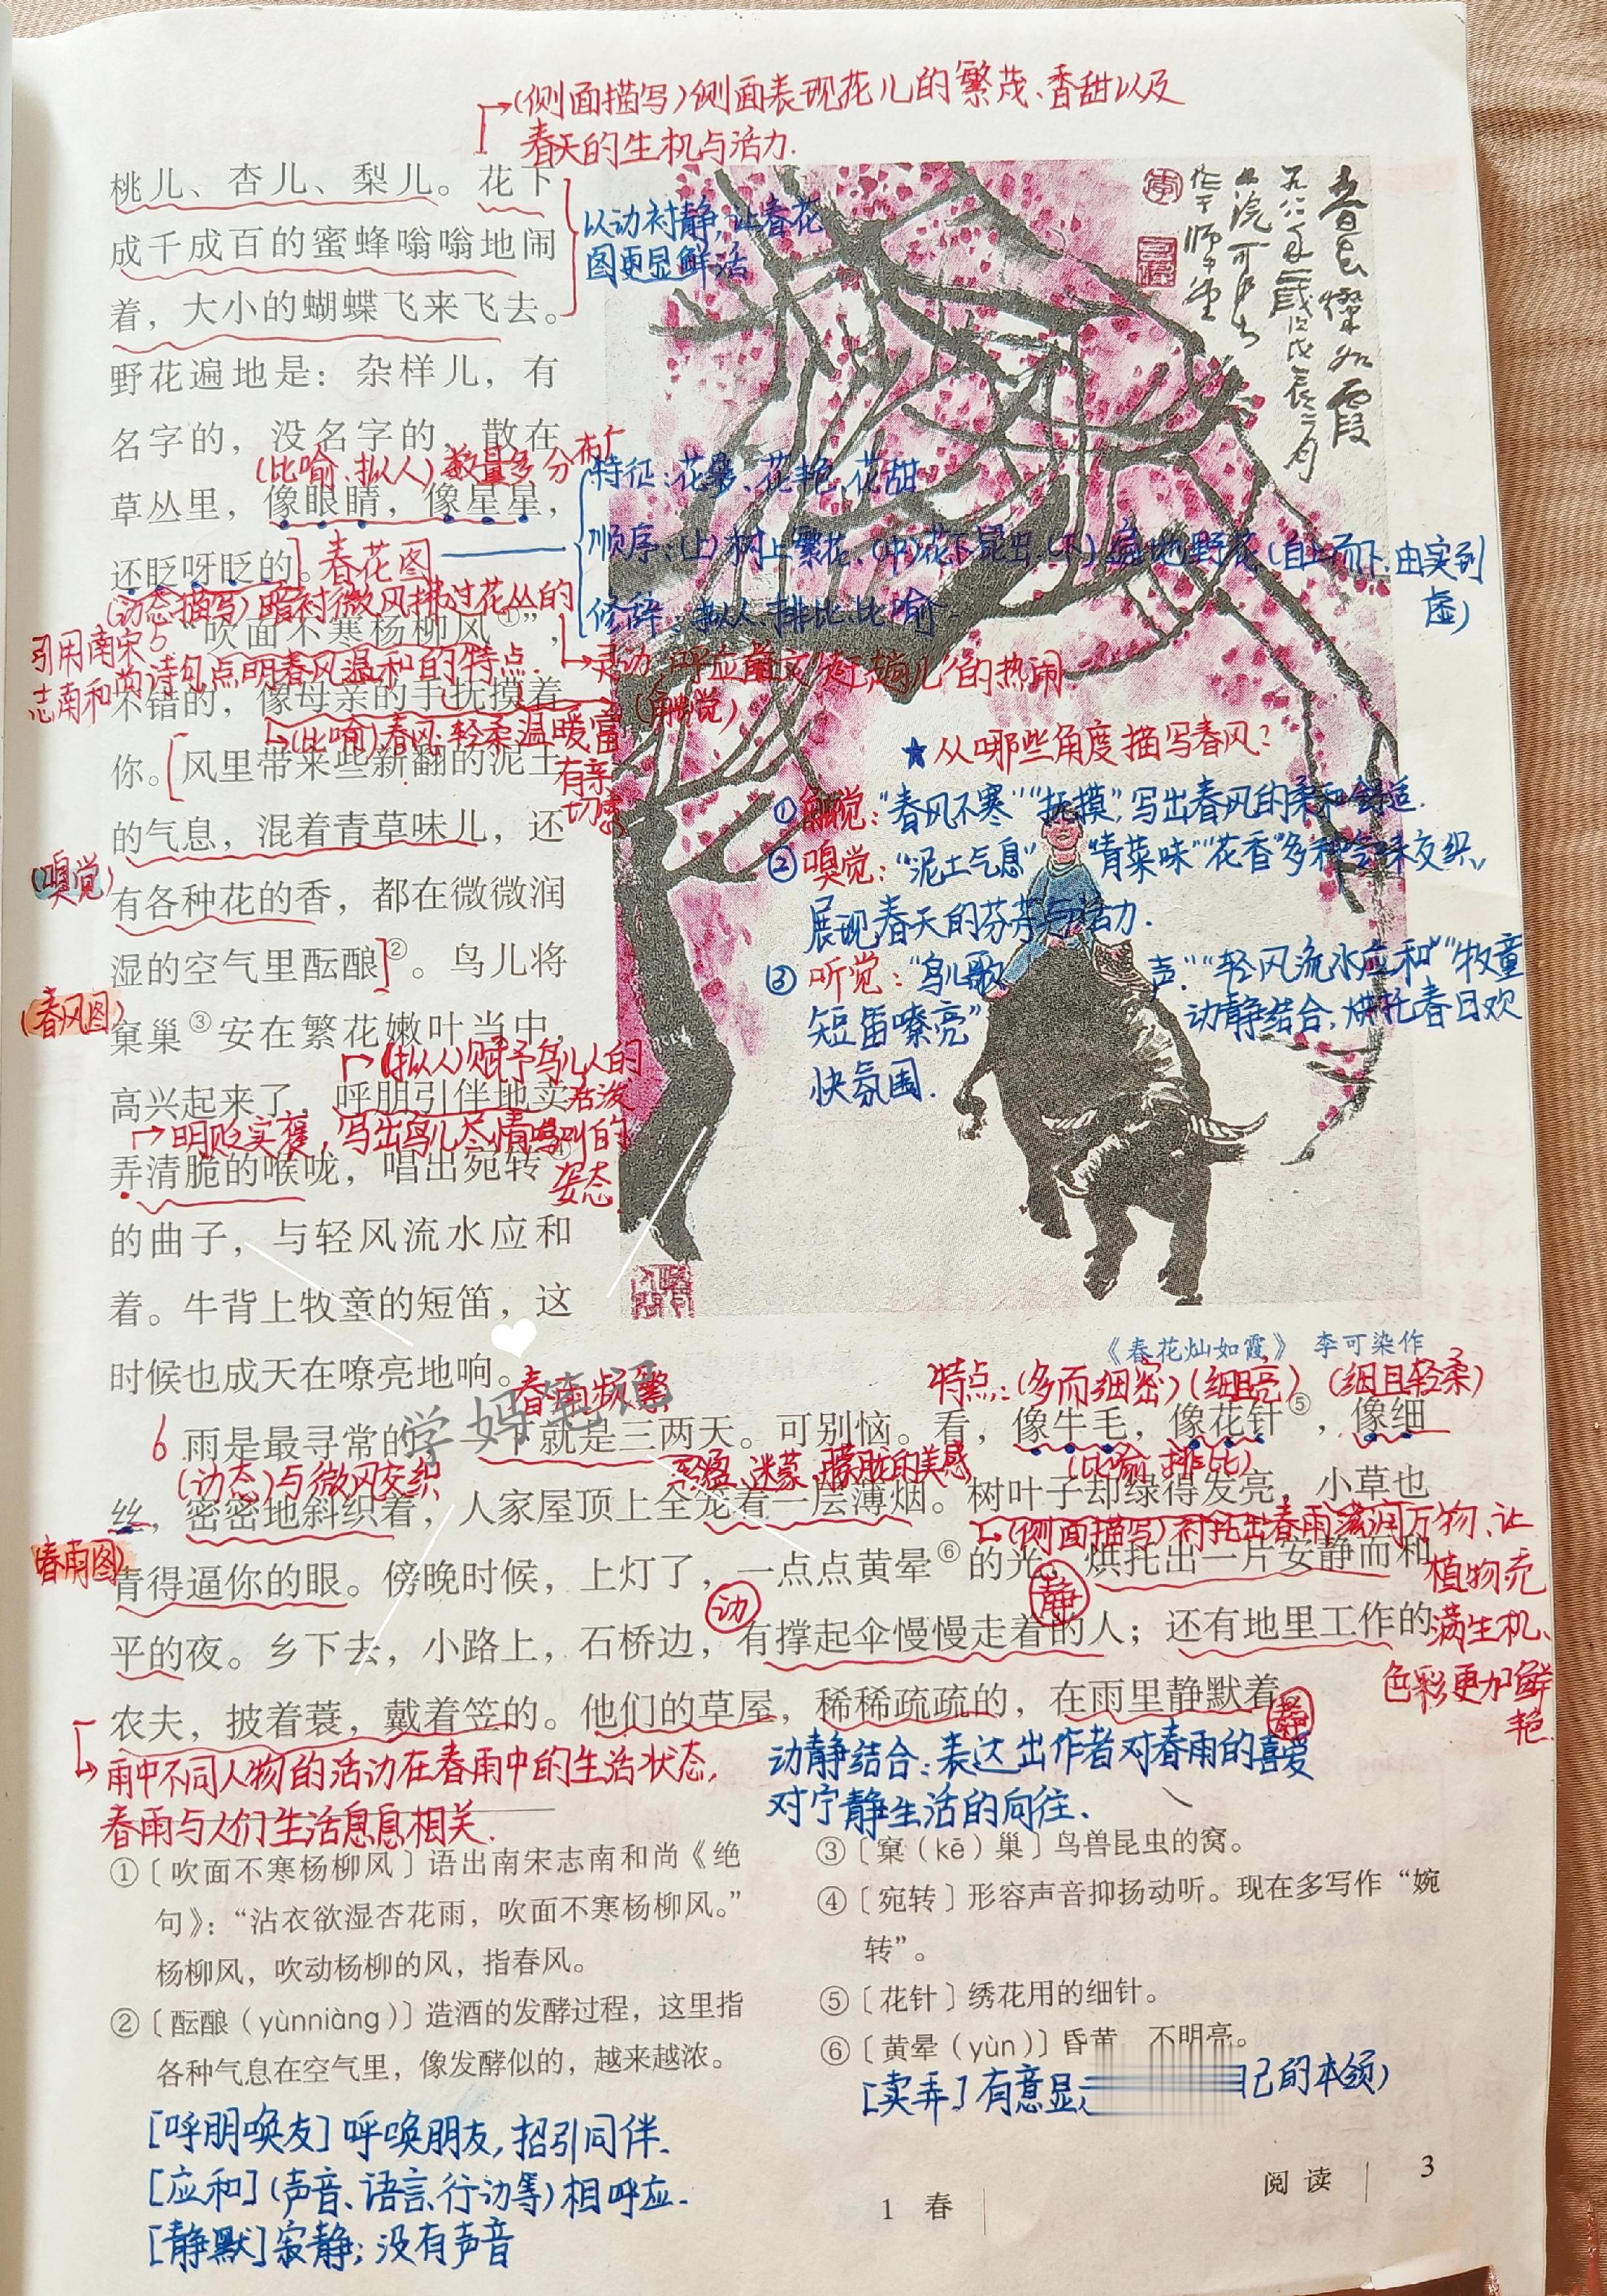 (侧面描写)侧面表现花儿的繁茂、香甜以及
春天的生机与活力.
桃儿、杏儿、梨儿。花下
成千成百的蜜蜂嗡嗡地闹
着，大小的蝴蝶飞来飞去。
以动衬静,让春花
图更显鲜活
野花遍地是：杂样儿，有
名字的，没名字的，散在
(比喻、拟人)数量多分布广
草丛里，像眼睛，像星星，
还眨呀眨的。
春花图
特征:花多、花艳、花甜
顺序:(上)树上繁花、(中)花下昆虫、(下)遍地野花(自上而下,由实到
虚)
修辞:拟人、排比、比喻
(动态描写)暗衬微风拂过花丛的
灵动,呼应前文“赶趟儿”的热闹.
“吹面不寒杨柳风①”，
引用南宋
志南和尚诗句点明春风温和的特点.
不错的，像母亲的手抚摸着
(触觉)
(比喻)春风轻柔温暖富
有亲
切感
你。风里带来些新翻的泥土
的气息，混着青草味儿，还
(嗅觉)
有各种花的香，都在微微润
湿的空气里酝酿②。鸟儿将
(春风图)
窠巢③安在繁花嫩叶当中，
(拟人)赋予鸟儿人的
活泼
高兴起来了，呼朋引伴地卖
明贬实褒,写出鸟儿尽情鸣叫的
姿态
弄清脆的喉咙，唱出宛转④
的曲子，与轻风流水应和
着。牛背上牧童的短笛，这
时候也成天在嘹亮地响。
春花灿如霞
★从哪些角度描写春风?
①触觉:“春风不寒”“抚摸”,写出春风的柔和舒适.
②嗅觉:“泥土气息”“青菜味”“花香”多种气味交织,
展现春天的芬芳与活力.
③听觉:“鸟儿歌声”“轻风流水应和”“牧童
短笛嘹亮”动静结合,烘托春日欢
快氛围.
《春花灿如霞》 李可染作
学妈笔记
春雨频繁
特点:(多而细密)(细且亮)(细且轻柔)
6 雨是最寻常的，一下就是三两天。可别恼。看，像牛毛，像花针⑤，像细
(动态)与微风交织
迷蒙、朦胧的美感
(比喻、排比)
丝，密密地斜织着，人家屋顶上全笼着一层薄烟。树叶子却绿得发亮，小草也
(侧面描写)衬托出春雨滋润万物、让
植物充
满生机、
色彩更加鲜
艳.
春雨图
青得逼你的眼。傍晚时候，上灯了，一点点黄晕⑥的光，烘托出一片安静而和
动
静
平的夜。乡下去，小路上，石桥边，有撑起伞慢慢走着的人；还有地里工作的
农夫，披着蓑，戴着笠的。他们的草屋，稀稀疏疏的，在雨里静默着。
静
雨中不同人物的活动在春雨中的生活状态,
春雨与人们生活息息相关.
动静结合:表达出作者对春雨的喜爱
对宁静生活的向往、
①〔吹面不寒杨柳风〕语出南宋志南和尚《绝
句》：“沾衣欲湿杏花雨，吹面不寒杨柳风。”
杨柳风，吹动杨柳的风，指春风。
②〔酝酿（yùnniàng）〕造酒的发酵过程，这里指
各种气息在空气里，像发酵似的，越来越浓。
③〔窠（kē）巢〕鸟兽昆虫的窝。
④〔宛转〕形容声音抑扬动听。现在多写作“婉
转”。
⑤〔花针〕绣花用的细针。
⑥〔黄晕（yùn）〕昏黄 不明亮。
[卖弄]有意显 己的本领)
[呼朋唤友]呼唤朋友,招引同伴.
[应和](声音、语言、行动等)相呼应.
[静默]寂静;没有声音
1 春
阅读 3